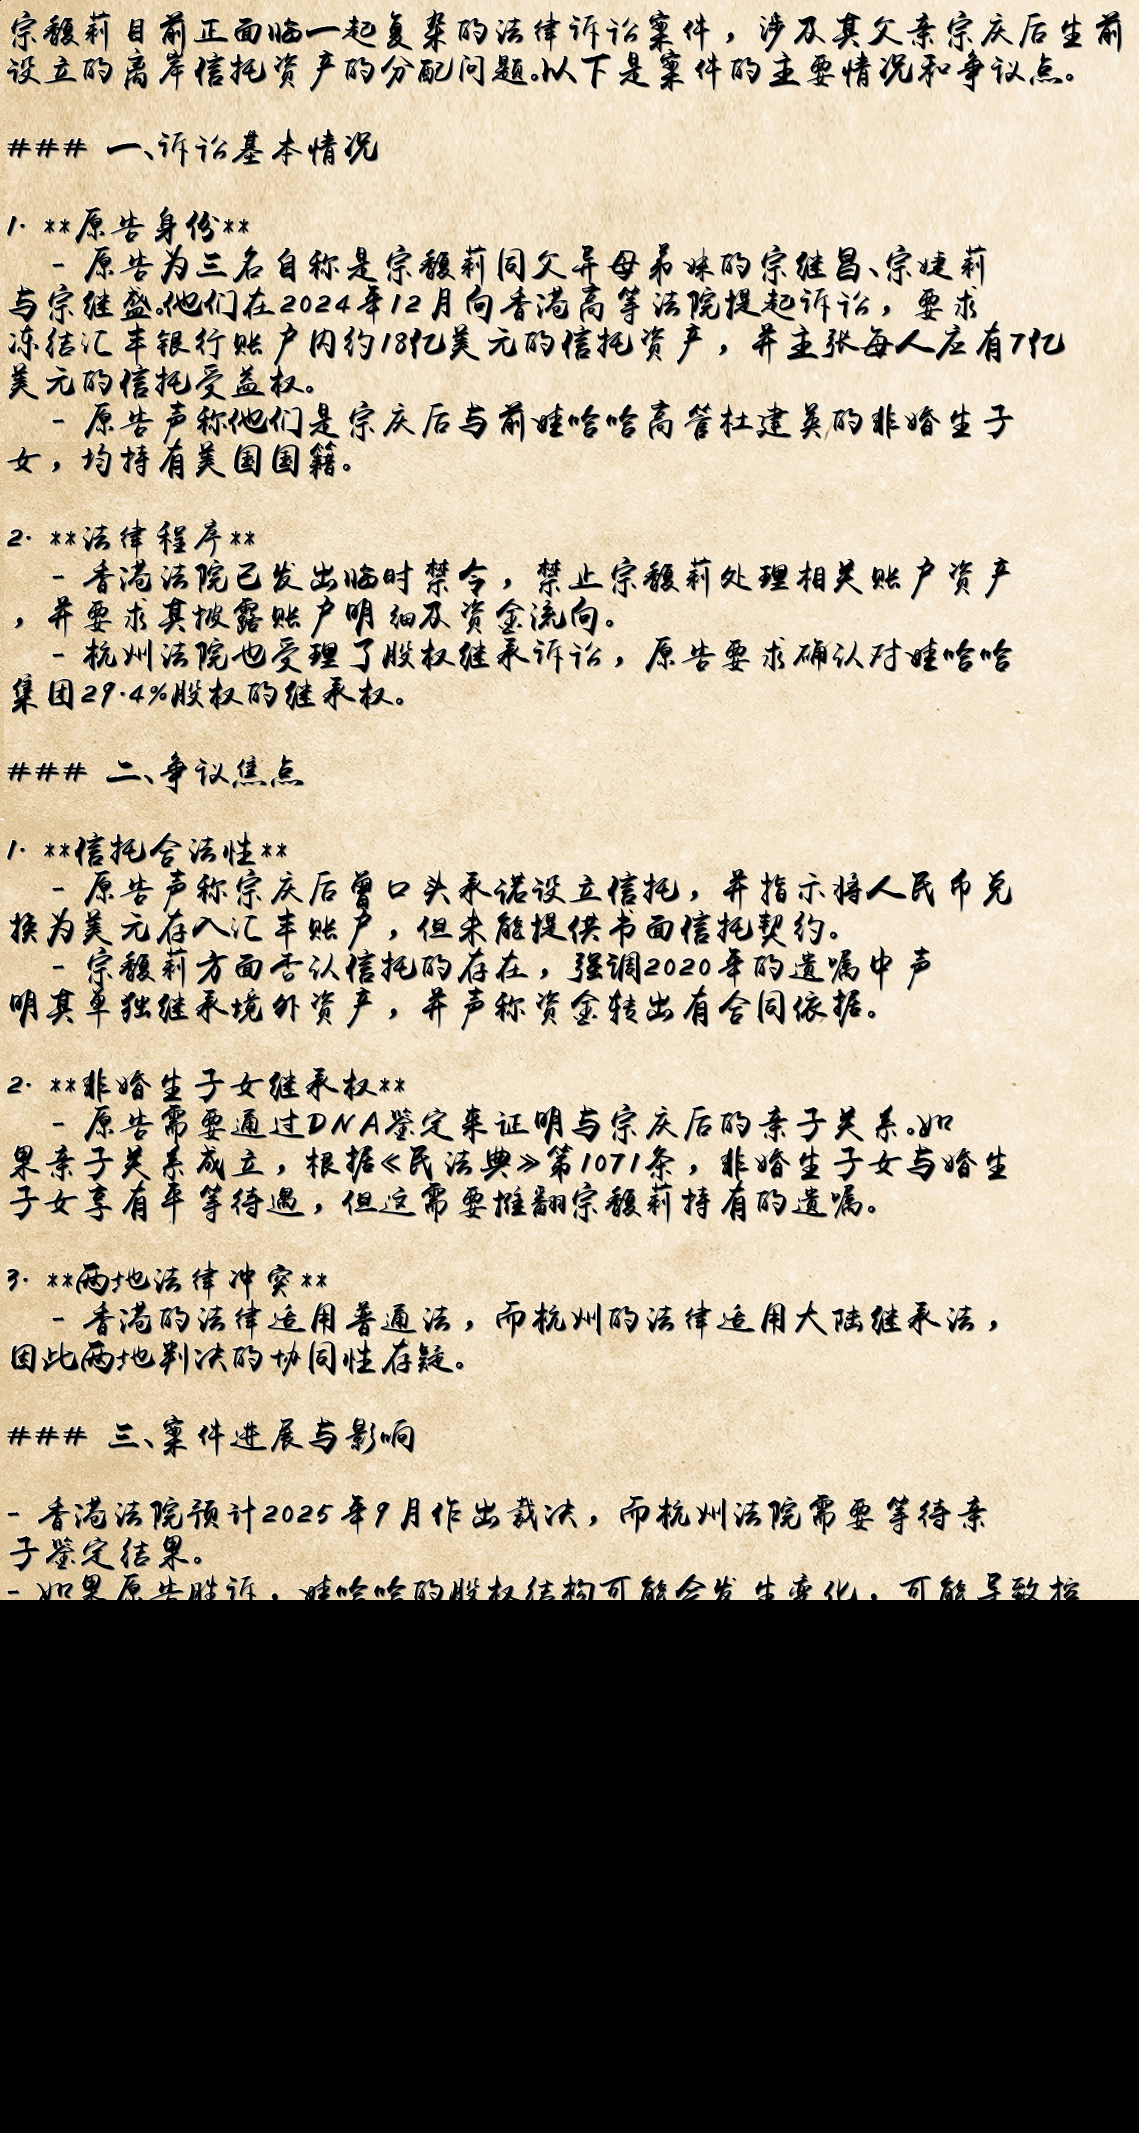 宗馥莉目前正面临一起复杂的法律诉讼案件，涉及其父亲宗庆后生前
设立的离岸信托资产的分配问题。以下是案件的主要情况和争议点。
### 一、诉讼基本情况
1. **原告身份**
- 原告为三名自称是宗馥莉同父异母弟妹的宗继昌、宗婕莉
与宗继盛。他们在2024年12月向香港高等法院提起诉讼，要求
冻结汇丰银行账户内约18亿美元的信托资产，并主张每人应有7亿
美元的信托受益权。
- 原告声称他们是宗庆后与前娃哈哈高管杜建英的非婚生子
女，均持有美国国籍。
2. **法律程序**
- 香港法院已发出临时禁令，禁止宗馥莉处理相关账户资产
，并要求其披露账户明细及资金流向。
- 杭州法院也受理了股权继承诉讼，原告要求确认对娃哈哈
集团29.4%股权的继承权。
### 二、争议焦点
1. **信托合法性**
- 原告声称宗庆后曾口头承诺设立信托，并指示将人民币兑
换为美元存入汇丰账户，但未能提供书面信托契约。
- 宗馥莉方面否认信托的存在，强调2020年的遗嘱中声
明其单独继承境外资产，并声称资金转出有合同依据。
2. **非婚生子女继承权**
- 原告需要通过DNA鉴定来证明与宗庆后的亲子关系。如
果亲子关系成立，根据《民法典》第1071条，非婚生子女与婚生
子女享有平等待遇，但这需要推翻宗馥莉持有的遗嘱。
3. **两地法律冲突**
- 香港的法律适用普通法，而杭州的法律适用大陆继承法，
因此两地判决的协同性存疑。
### 三、案件进展与影响
- 香港法院预计2025年9月作出裁决，而杭州法院需要等待亲
子鉴定结果。
- 如果原告胜诉，娃哈哈的股权结构可能会发生变化，可能导致控